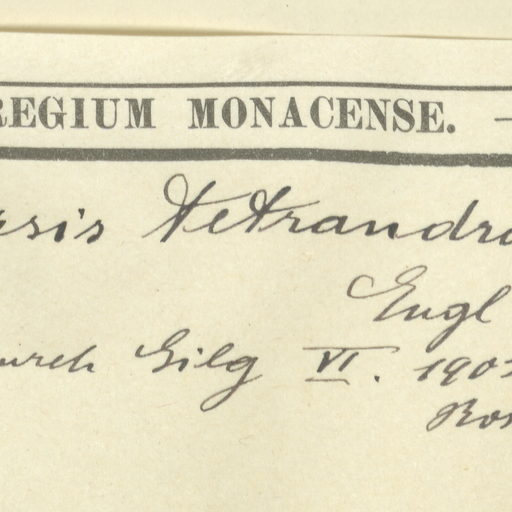 REGIUM MONACENSE. —
rsis tetrandra
Engl
durch Gilg VI. 1902
Ros